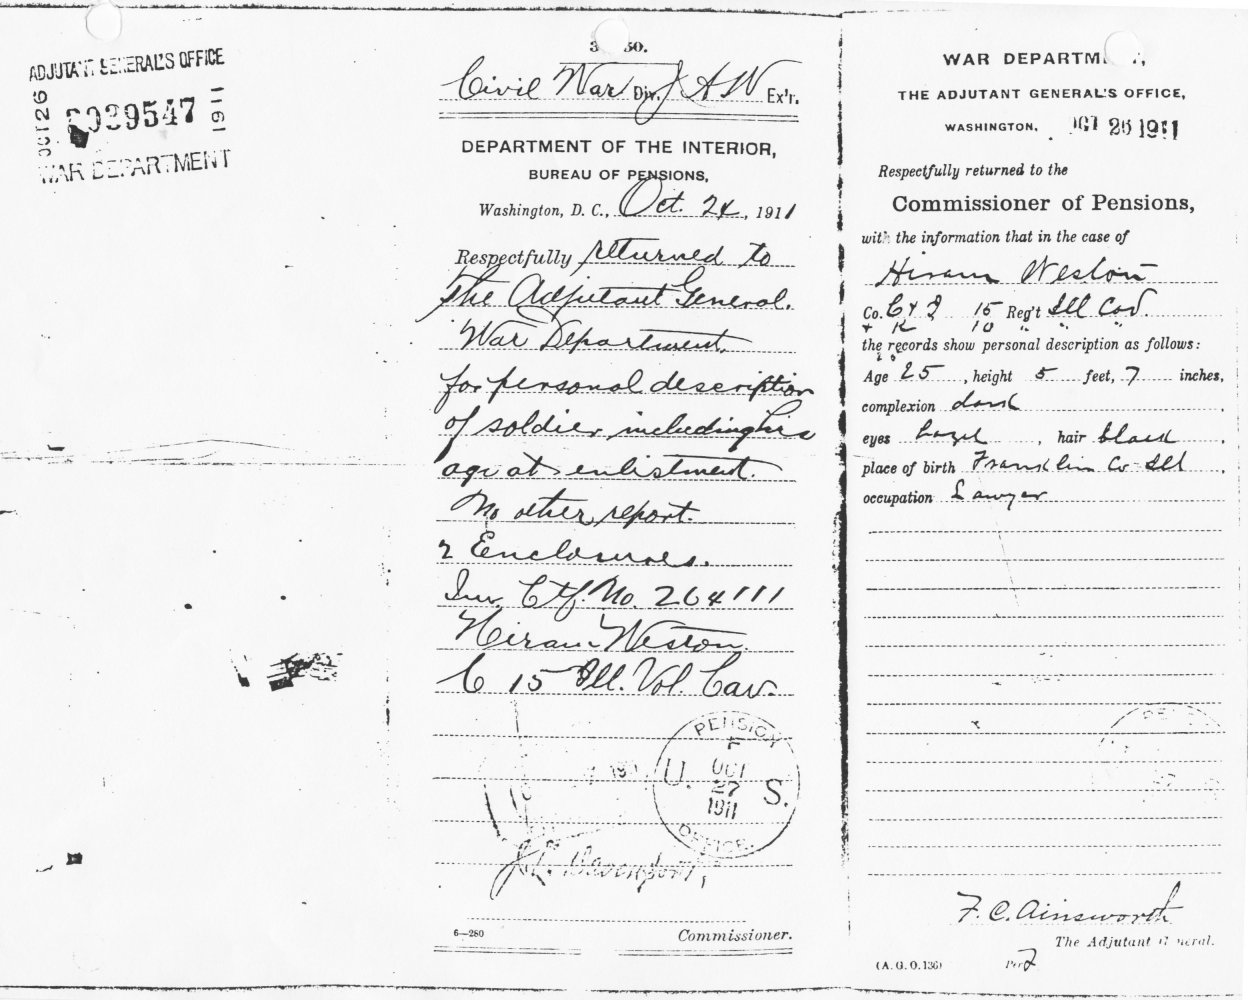 ADJUTANT GENERAL'S OFFICE
OCT 26
2039547
1911
WAR DEPARTMENT
3 50.
Civil War Div. J A W Ex'r.
DEPARTMENT OF THE INTERIOR,
BUREAU OF PENSIONS,
Washington, D. C., Oct. 24, 1911
Respectfully returned to
the Adjutant General.
War Department,
for personal description
of soldier including his
age at enlistment.
No other report.
2 Enclosures.
Inv. Ctf. No. 264111
Hiram Weston.
C 15 Ill. Vol. Cav.
PENSION
OCT
U. 27 S.
1911
OFFICE
J. L. Davenport,
6—280 Commissioner.
WAR DEPARTMENT,
THE ADJUTANT GENERAL'S OFFICE,
WASHINGTON, OCT 26 1911
Respectfully returned to the
Commissioner of Pensions,
with the information that in the case of
Hiram Weston
Co. C & I 15 Reg't Ill Cav.
+ K 10 " " "
the records show personal description as follows:
Age 25, height 5 feet, 7 inches,
complexion dark,
eyes hazel, hair black,
place of birth Franklin Co Ill,
occupation Lawyer
F. C. Ainsworth
The Adjutant General.
(A. G. O. 136) Per